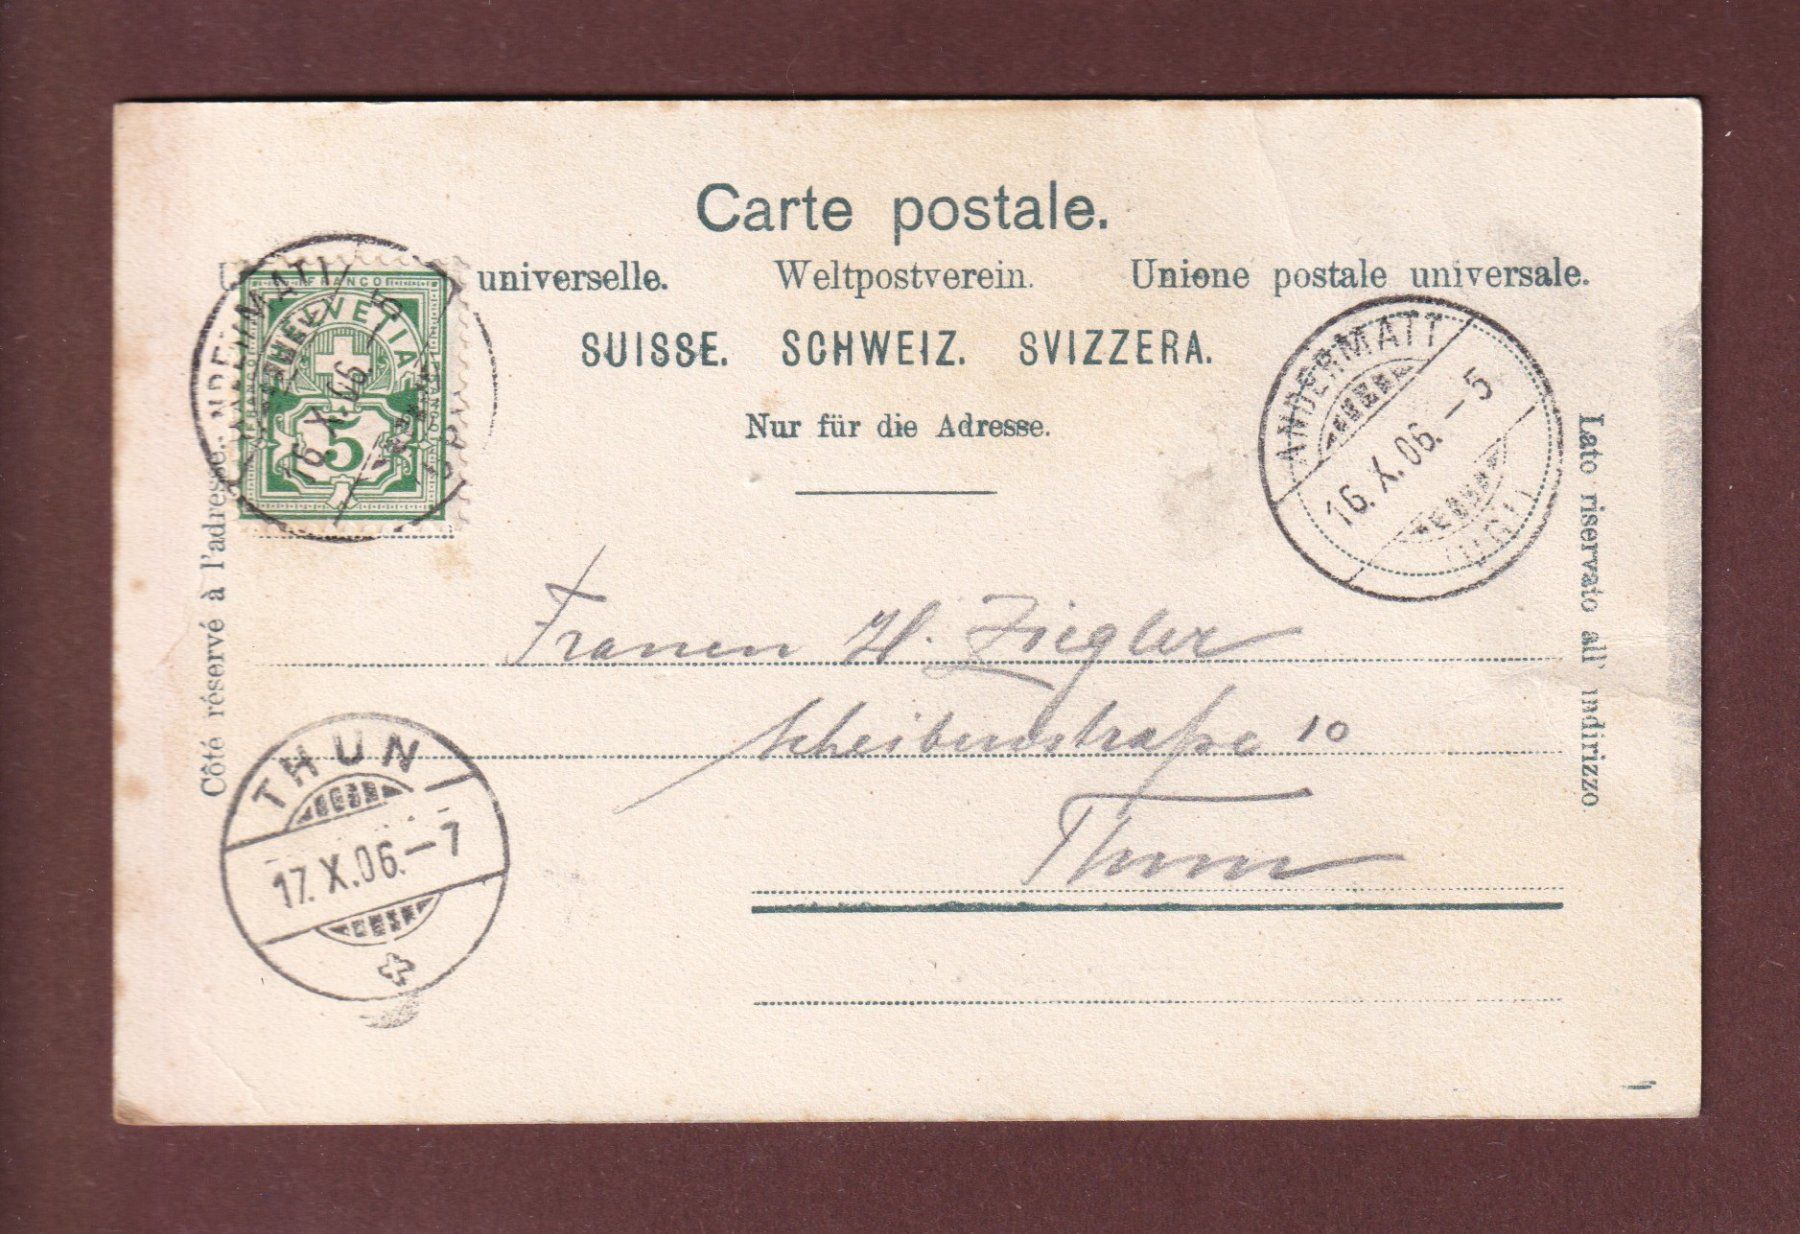 Carte postale.
universelle. Weltpostverein. Unione postale universale.
SUISSE. SCHWEIZ. SVIZZERA.
Nur für die Adresse.
FRANCO
HELVETIA
5
16.X.06.-5
ANDERMATT
16.X.06.-5
(URI)
Côté réservé à l'adresse.
Lato riservato all' indirizzo
Frauen H. Ziegler
Scheibenstraße 10
Thun
THUN
17.X.06.-7